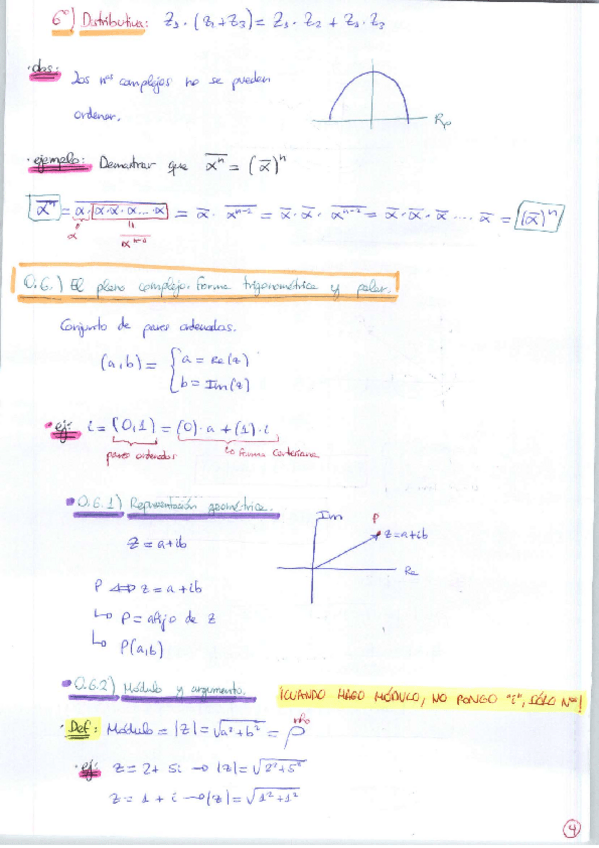 6º) Distributiva: Z₁ · (Z₂+Z₃) = Z₁ · Z₂ + Z₁ · Z₃
· obs: Los nºs complejos no se pueden
ordenar.
· ejemplo: Demostrar que \overline{αⁿ} = (\overline{α})ⁿ
0.6.) El plano complejo. Forma trigonométrica y polar.
Conjunto de pares ordenados.
(a,b) = { a = Re(z)
b = Im(z)
· ej: i = (0,1) = (0)·a + (1)·i
pares ordenados
Forma Cartesiana
· 0.6.1) Representación geométrica.
Im
P
Z = a+ib
z=a+ib
Re
P ⇔ z = a+ib
↳ P = afijo de z
↳ P(a,b)
· 0.6.2) Módulo y argumento.
¡CUANDO HAGO MÓDULO, NO PONGO "i", SÓLO Nºs!
· Def: Módulo = |Z| = √a²+b² = ρ
· ej: z = 2+5i → |z| = √2²+5²
z = 1+i → |z| = √1²+1²
4